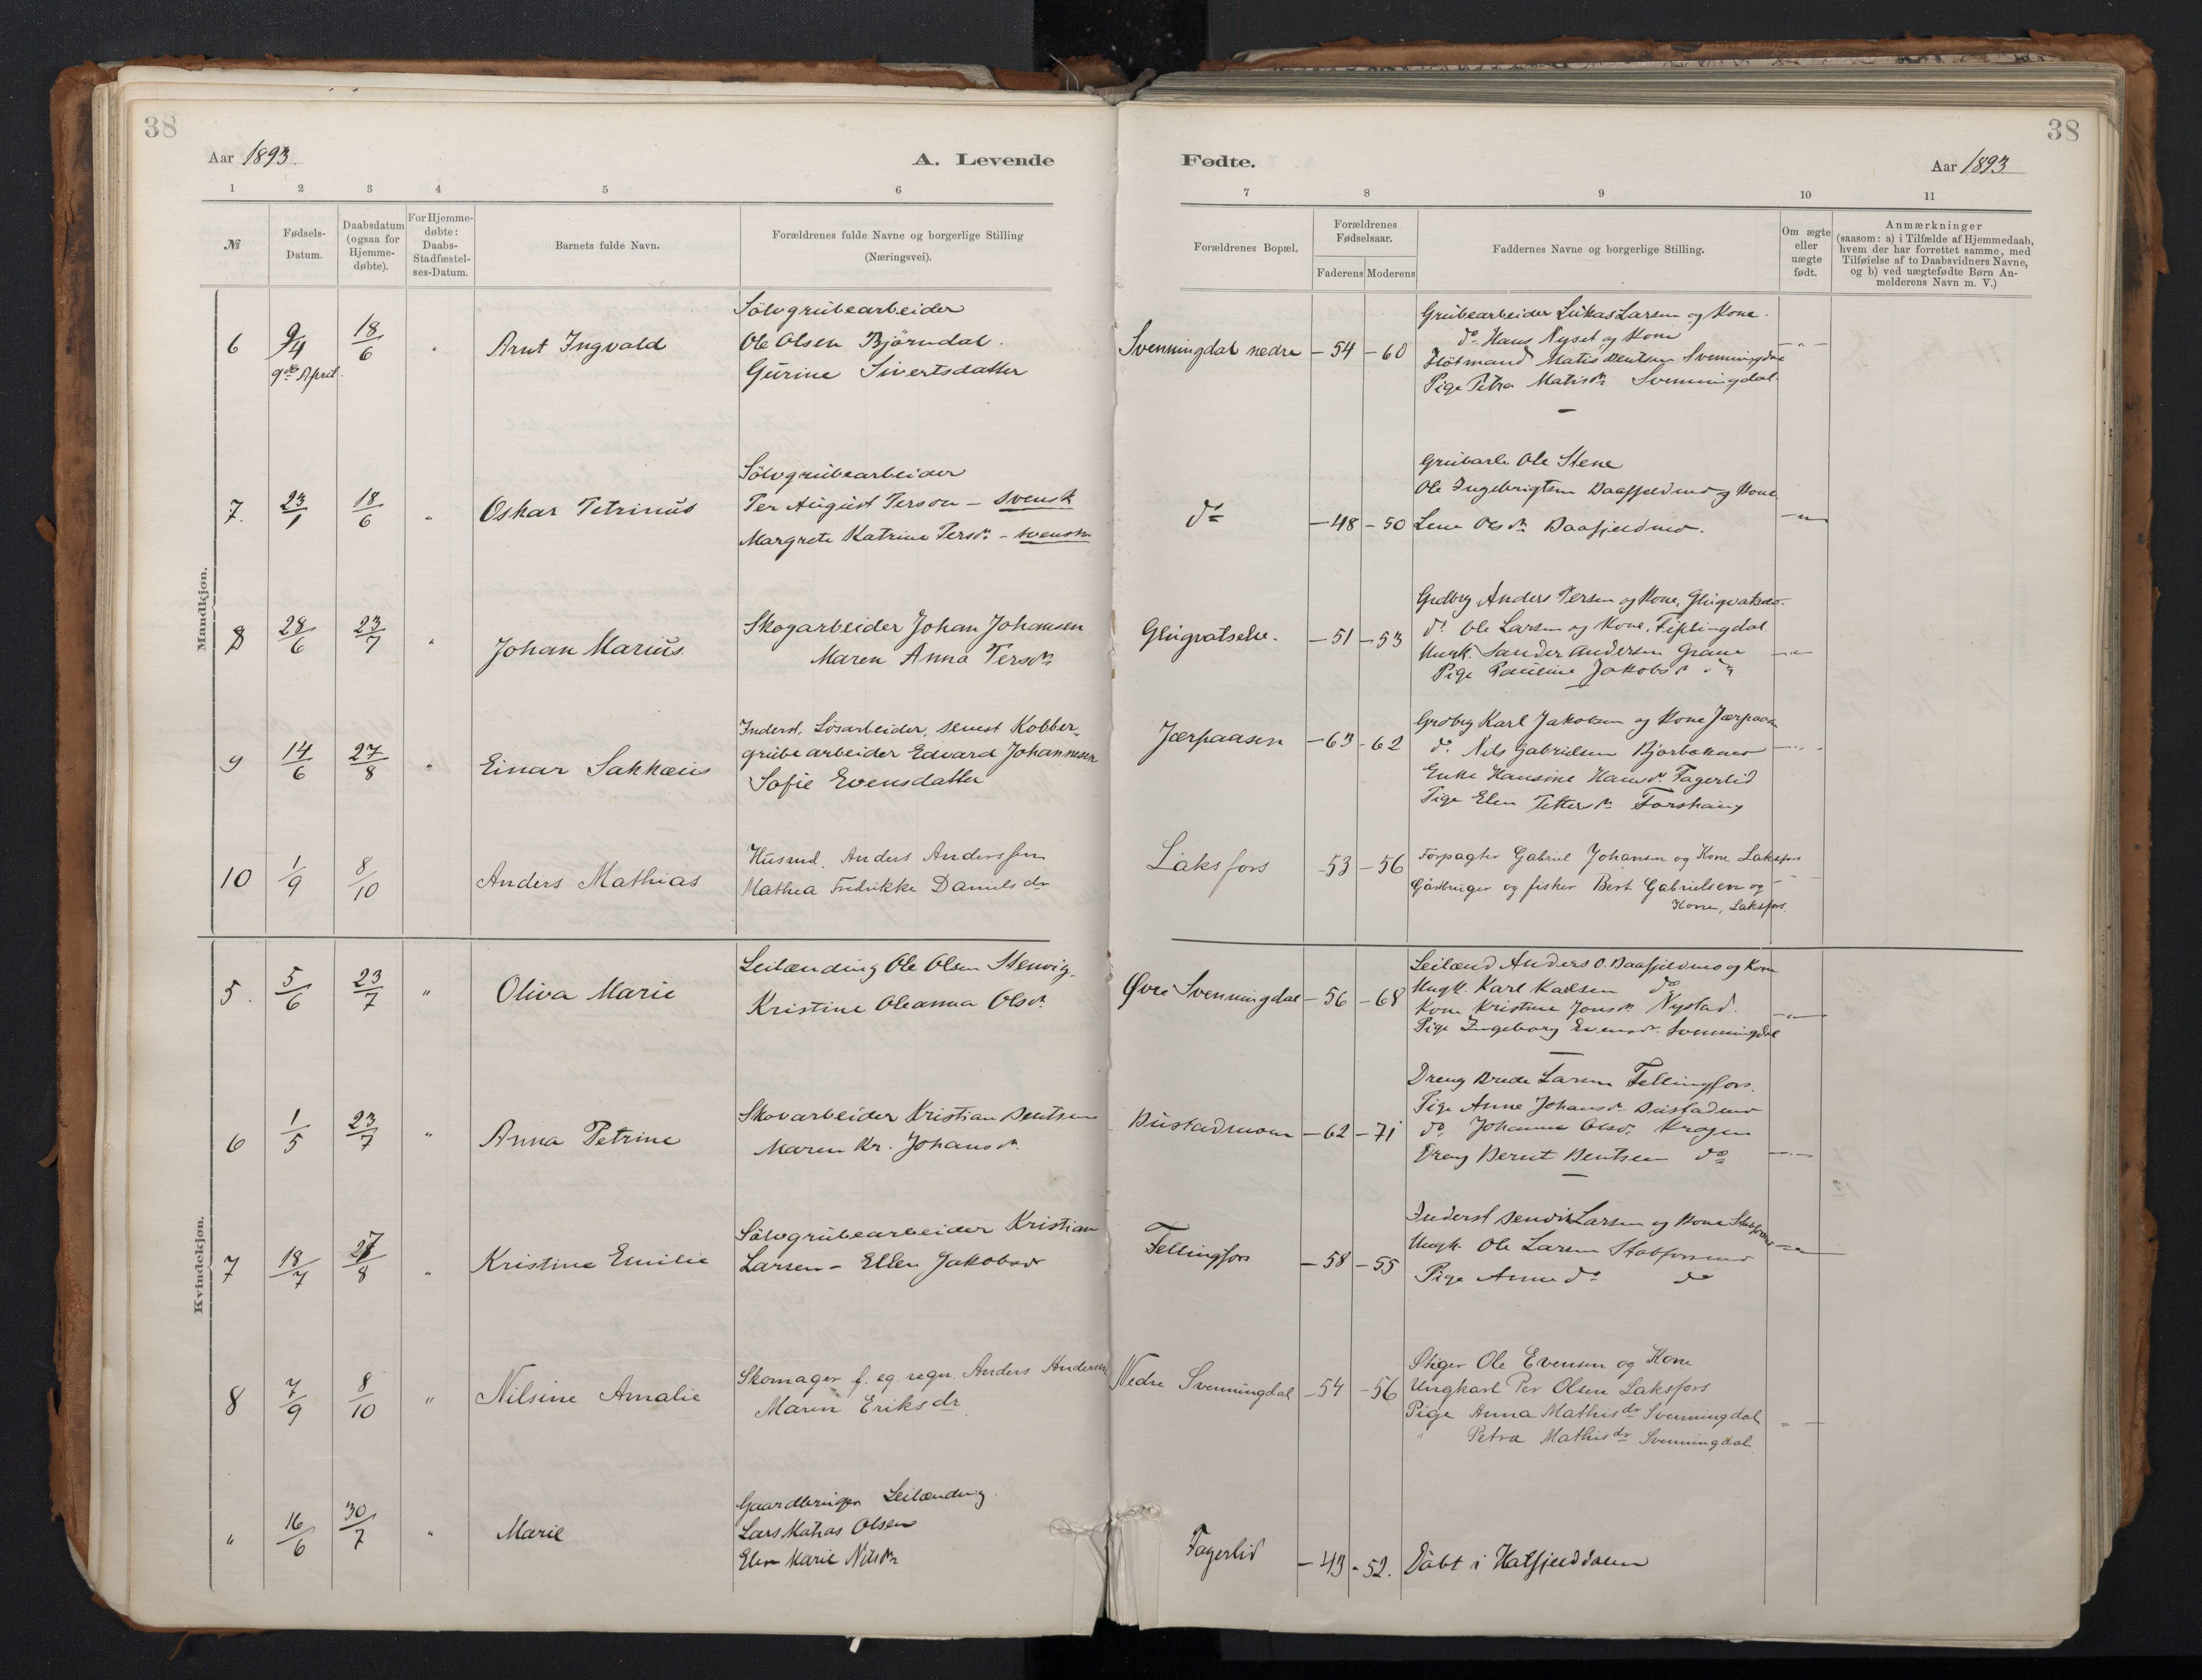 38
38
Aar 1893.
A. Levende
Fødte.
Aar 1893
1 2 3 4 5 6 7 8 9 10 11
№
Fødsels-
Datum.
Daabsdatum
(ogsaa for
Hjemme-
døbte).
For Hjemme-
døbte:
Daabs-
Stadfæstel-
ses-Datum.
Barnets fulde Navn.
Forældrenes fulde Navne og borgerlige Stilling
(Næringsvei).
Forældrenes Bopæl.
Forældrenes
Fødselsaar.
Faderens Moderens
Faddernes Navne og borgerlige Stilling.
Om ægte
eller
uægte
født.
Anmærkninger
(saasom: a) i Tilfælde af Hjemmedaab,
hvem der har forrettet samme, med
Tilføielse af to Daabsvidners Navne,
og b) ved uægtefødte Børn An-
melderens Navn m. V.)
Mandkjøn.
6
9/4
9de April.
18/6
"
Arnt Ingvald
Sölvgrubearbeider
Ole Olsen Björndal.
Gurine Sivertsdatter
Svenningdal nedre
- 54 - 60
Grubearbeider Lukas Larsen og Kone.
do Hans Nyset og Kone
Matis Bentsen Svenningdal
Pige Petra Matisdr Svenningdal.
- " -
7.
23/1
18/6
"
Oskar Petrinus
Sölvgrubearbeider
Per August Person - svensk
Margrete Katrine Persdr - svensk
do
- 48 - 50
Grubearb Ole Stene
Ole Ingebrigtsen Baafjeldmo og Kone
Lene Olsdr Baafjeldmo.
- " -
8
28/6
23/7
"
Johan Marius.
Skogarbeider Johan Johansen
Maren Anna Persdr
Glugvatselv.
- 51 - 53
Grdbrg Anders Persen og Kone,
do Ole Larsen og Kone, Fiplingdal.
Ungk. Sander Andersen Grane
Pige Pauline Jakobsdr do
- " -
9
14/6
27/8
"
Einar Sakkæus
Inderst, Løsarbeider, senest Kobber-
grubearbeider Edvard Johannesen
Sofie Evensdatter
Jærpaasen
- 63 - 62
Grdbrg Karl Jakobsen og Kone Jærpaasen
do Nils Gabrielsen
Enke Hansine Hansdr Fagerlid
Pige Elen Pettersdr Forshaug
- " -
10
1/9
8/10
Anders Mathias
Husmd. Anders Anderssen
Mathea Fredrikke Danielsdr
Laksfors
- 53 - 56
Forpagter Gabriel Johansen og Kone Laksfors
Gårdbruger og fisker Bert Gabrielsen og
Kone, Laksfors.
- " -
Kvindekjøn.
5.
5/6
23/7
"
Oliva Marie
Leilænding Ole Olsen Stenvig.
Kristine Oleanna Olsdr
Øvre Svenningdal
- 56 - 68
Leilænd Anders O. Baafjeldmo og Kone
Ungk. Karl Karlsen do
Kone Kristine Jonsdr Nystad.
Pige Ingeborg Evensdr. Svenningdal
- " -
6
1/5
23/7
"
Anna Petrine
Skovarbeider Kristian Bentsen
Maren Kr. Johansdr
Bustadmoen
- 62 - 71
Dreng Brede Larsen Fellingfors.
Pige Anne Johansdr Bustadmo
do. Johanne Olsdr. Krogen
Dreng Bernt Bentsen do
- " -
7
18/7
27/8
"
Kristine Emilie
Sölvgrubearbeider Kristian
Larsen - Ellen Jakobsdr
Fellingfors
- 58 - 55
Inderst Larsen og Kone
Ungk. Ole Larsen Stabforsmo
Pige Anne do do
- " -
8
7/9
8/10
"
Nilsine Amalie
Skomager f. eg. regn. Anders Andersen
Maren Eriksdr
Nedre Svenningdal
- 54 - 56
Stiger Ole Evensen og Kone
Ungkarl Per Olsen Laksfors
Pige Anna Mathisdr Svenningdal
" Petra Mathisdr Svenningdal
- " -
"
16/6
30/7
"
Marie
Gaardbruger Leilænding.
Lars Matias Olsen
Elen Marie Nilsdr
Fagerlid
- 43 - 52.
Døbt i Hatfjelddalen